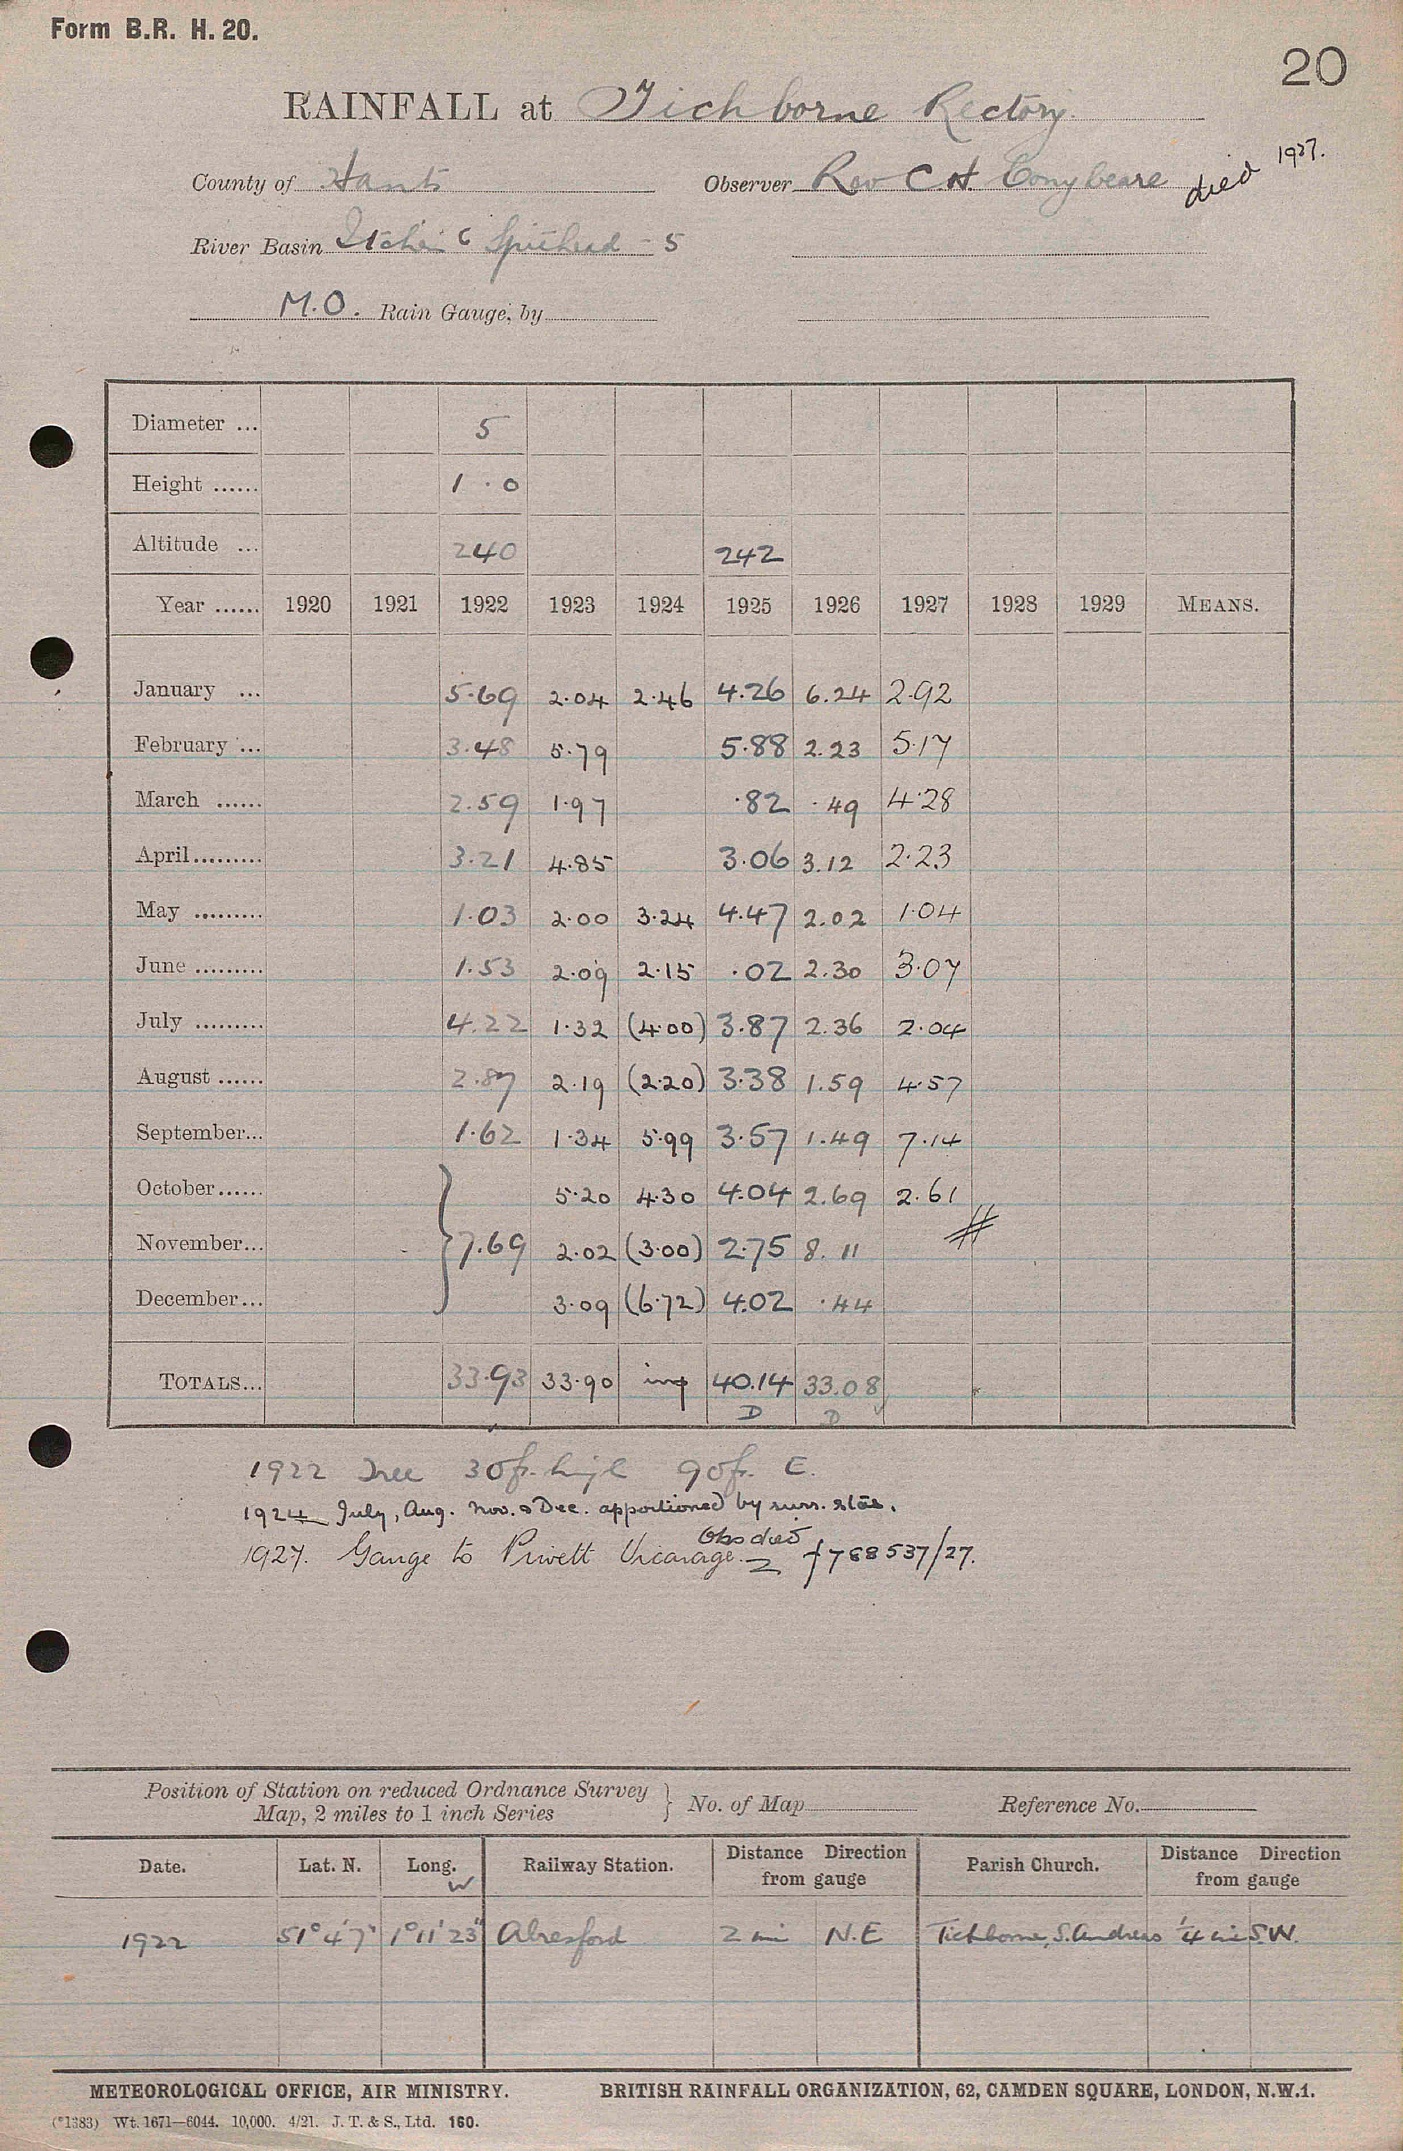 Form B.R. H. 20.
20
RAINFALL at Tichborne Rectory.
County of Hants Observer Rev C H. Conybeare died 1927.
River Basin Itchen 6 Spithead - 5
M.O. Rain Gauge, by
Diameter ... 5
Height ...... 1 . 0
Altitude ... 240 242
Year ...... 1920 1921 1922 1923 1924 1925 1926 1927 1928 1929 MEANS.
January ... 5.69 2.04 2.46 4.26 6.24 2.92
February ... 3.48 5.79 5.88 2.23 5.17
March ...... 2.59 1.97 .82 .49 4.28
April......... 3.21 4.85 3.06 3.12 2.23
May ......... 1.03 2.00 3.24 4.47 2.02 1.04
June ......... 1.53 2.09 2.15 .02 2.30 3.07
July ......... 4.22 1.32 (4.00) 3.87 2.36 2.04
August ...... 2.87 2.19 (2.20) 3.38 1.59 4.57
September... 1.62 1.34 5.99 3.57 1.49 7.14
October...... 5.20 4.30 4.04 2.69 2.61
November... } 7.69 2.02 (3.00) 2.75 8.11 #
December... 3.09 (6.72) 4.02 .44
TOTALS... 33.93 33.90 imp 40.14 33.08
D D
1922 Tree 30ft. high 90ft. E.
1924 July, Aug. Nov. & Dec. apportioned by surr. stns.
Obs died
1927. Gauge to Privett Vicarage. f 768537/27.
Position of Station on reduced Ordnance Survey
Map, 2 miles to 1 inch Series } No. of Map Reference No.
Date. Lat. N. Long. W Railway Station. Distance Direction from gauge Parish Church. Distance Direction from gauge
1922 51° 4' 7" 1° 11' 23" Alresford 2 mi N.E Tichborne, S. Andrews ¼ mi S.W.
METEOROLOGICAL OFFICE, AIR MINISTRY. BRITISH RAINFALL ORGANIZATION, 62, CAMDEN SQUARE, LONDON, N.W.1.
(*1383) Wt. 1671—6044. 10,000. 4/21. J. T. & S., Ltd. 160.